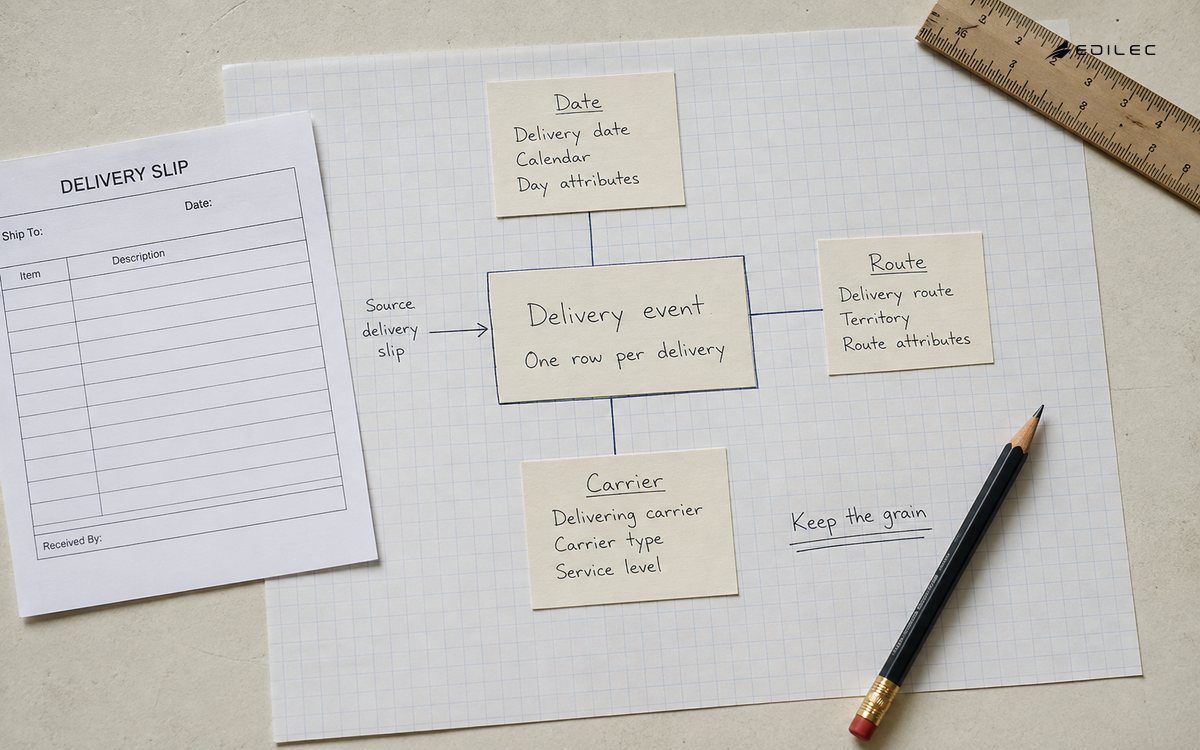 EDILEC
DELIVERY SLIP
Date:
Ship To:
Item
Description
Received By:
Source
delivery
slip
Date
Delivery date
Calendar
Day attributes
Delivery event
One row per delivery
Route
Delivery route
Territory
Route attributes
Carrier
Delivering carrier
Carrier type
Service level
Keep the grain